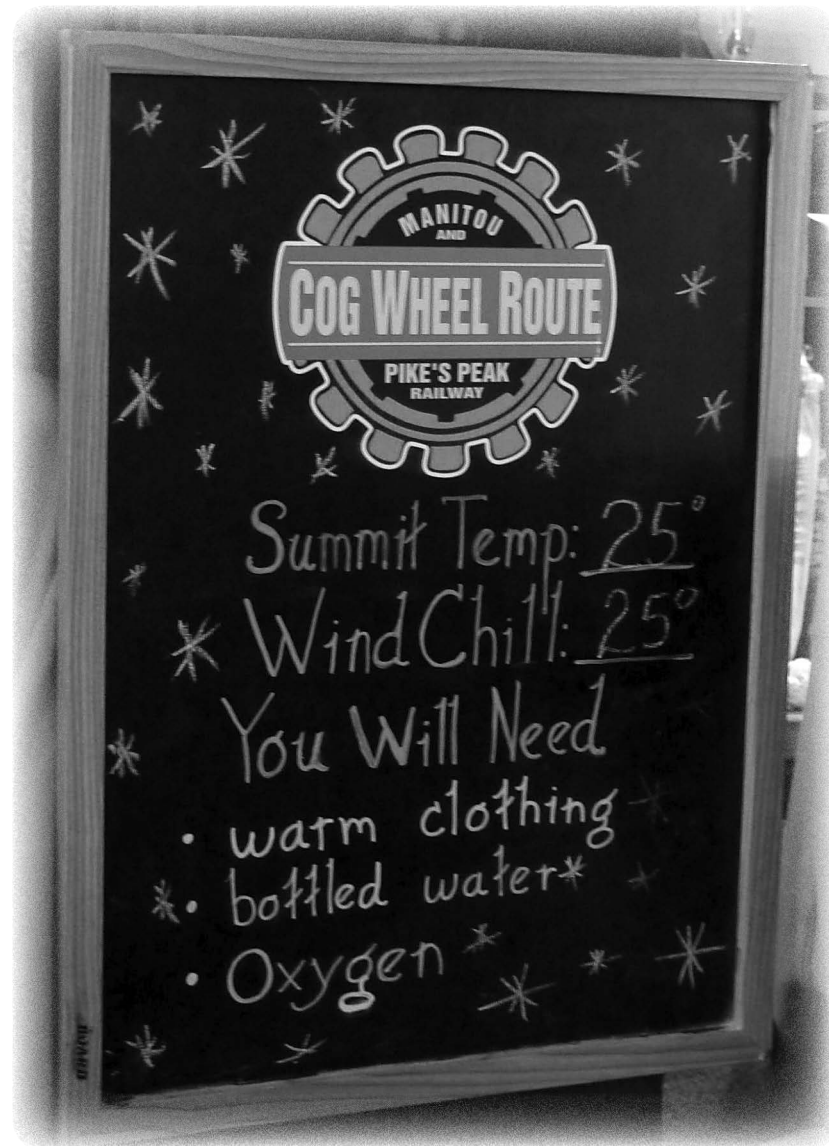 MANITOU
AND
COG WHEEL ROUTE
PIKE'S PEAK
RAILWAY
Summit Temp: 25°
Wind Chill: 25°
You Will Need
• warm clothing
• bottled water*
• Oxygen